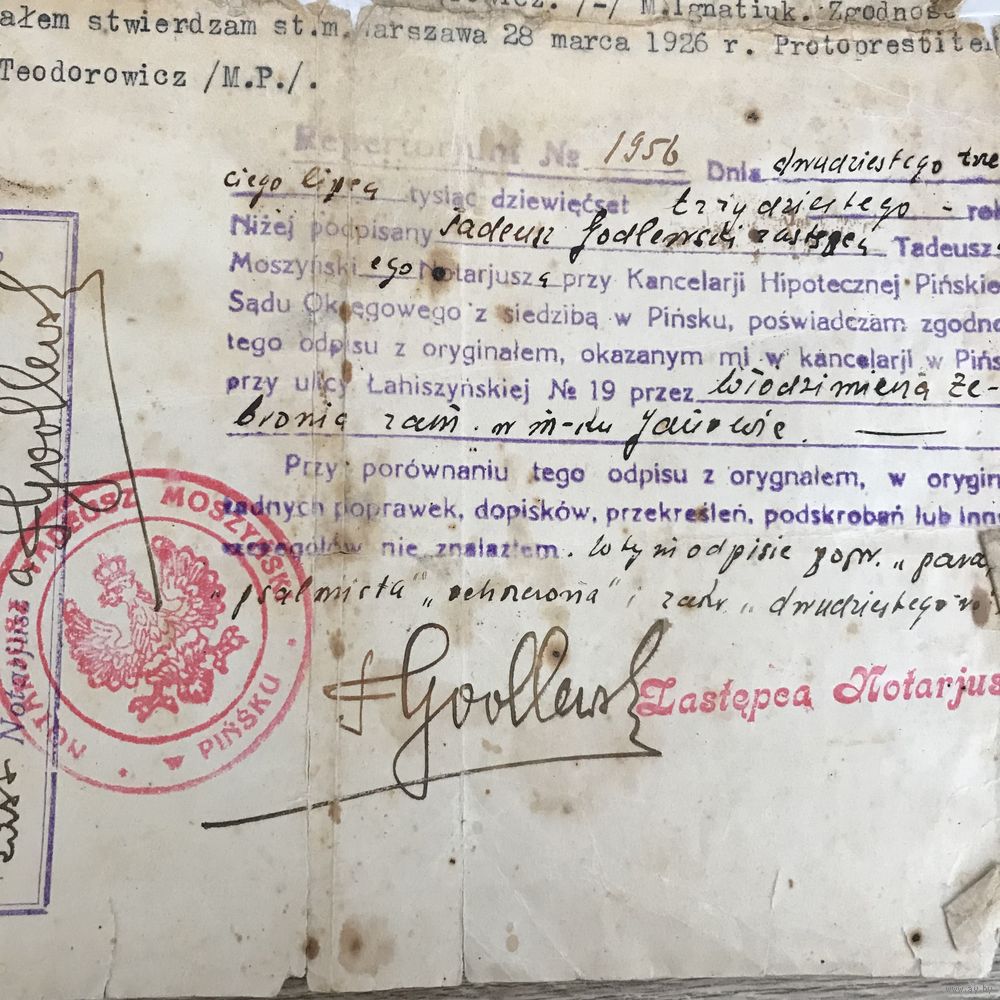 M.Ignatiuk. Zgodność
ałem stwierdzam st.m.Warszawa 28 marca 1926 r. Protoprestiter
Teodorowicz /M.P./.
Repertorium № 1956 Dnia dwudziestego trze
ciego lipca tysiąc dziewięćset trzydziestego - rok
Niżej podpisany Tadeusz Godlewski zastępca Tadeusza
Moszyńskiego Notarjusza przy Kancelarji Hipotecznej Pińskie
Sądu Okręgowego z siedzibą w Pińsku, poświadczam zgodno
tego odpisu z oryginałem, okazanym mi w kancelarji w Pińs
przy ulicy Łahiszyńskiej № 19 przez Włodzimierza Że-
bronia zam. w m-ku Janowie
Przy porównaniu tego odpisu z orygnałem, w orygin
żadnych poprawek, dopisków, przekreśleń, podskrobań lub inn
szczegółów nie znalazłem. W tym odpisie popr. „para
„psalmista" „ochrzczona" i zakr. „dwudziestego
TGodlewski Zastępca Notarjus
NOTARJUSZ TADEUSZ MOSZYŃSKI W PIŃSKU
Notarjusz
TGodlewski
www.ay.by